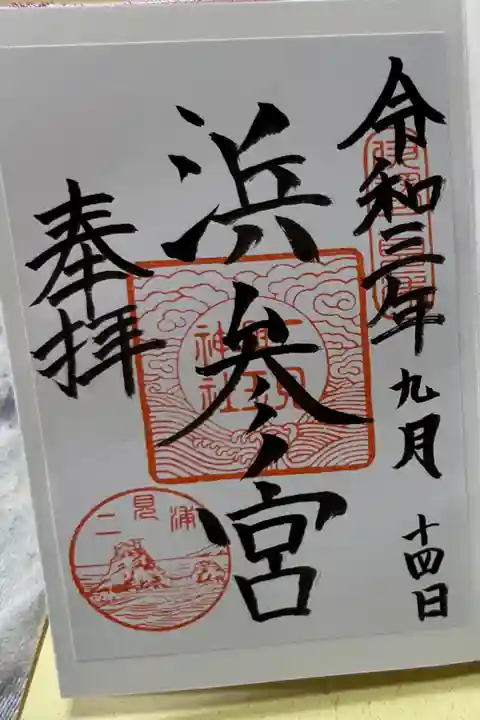 令和三年九月十四日
浜参宮
奉拝
二見興玉神社
二見浦